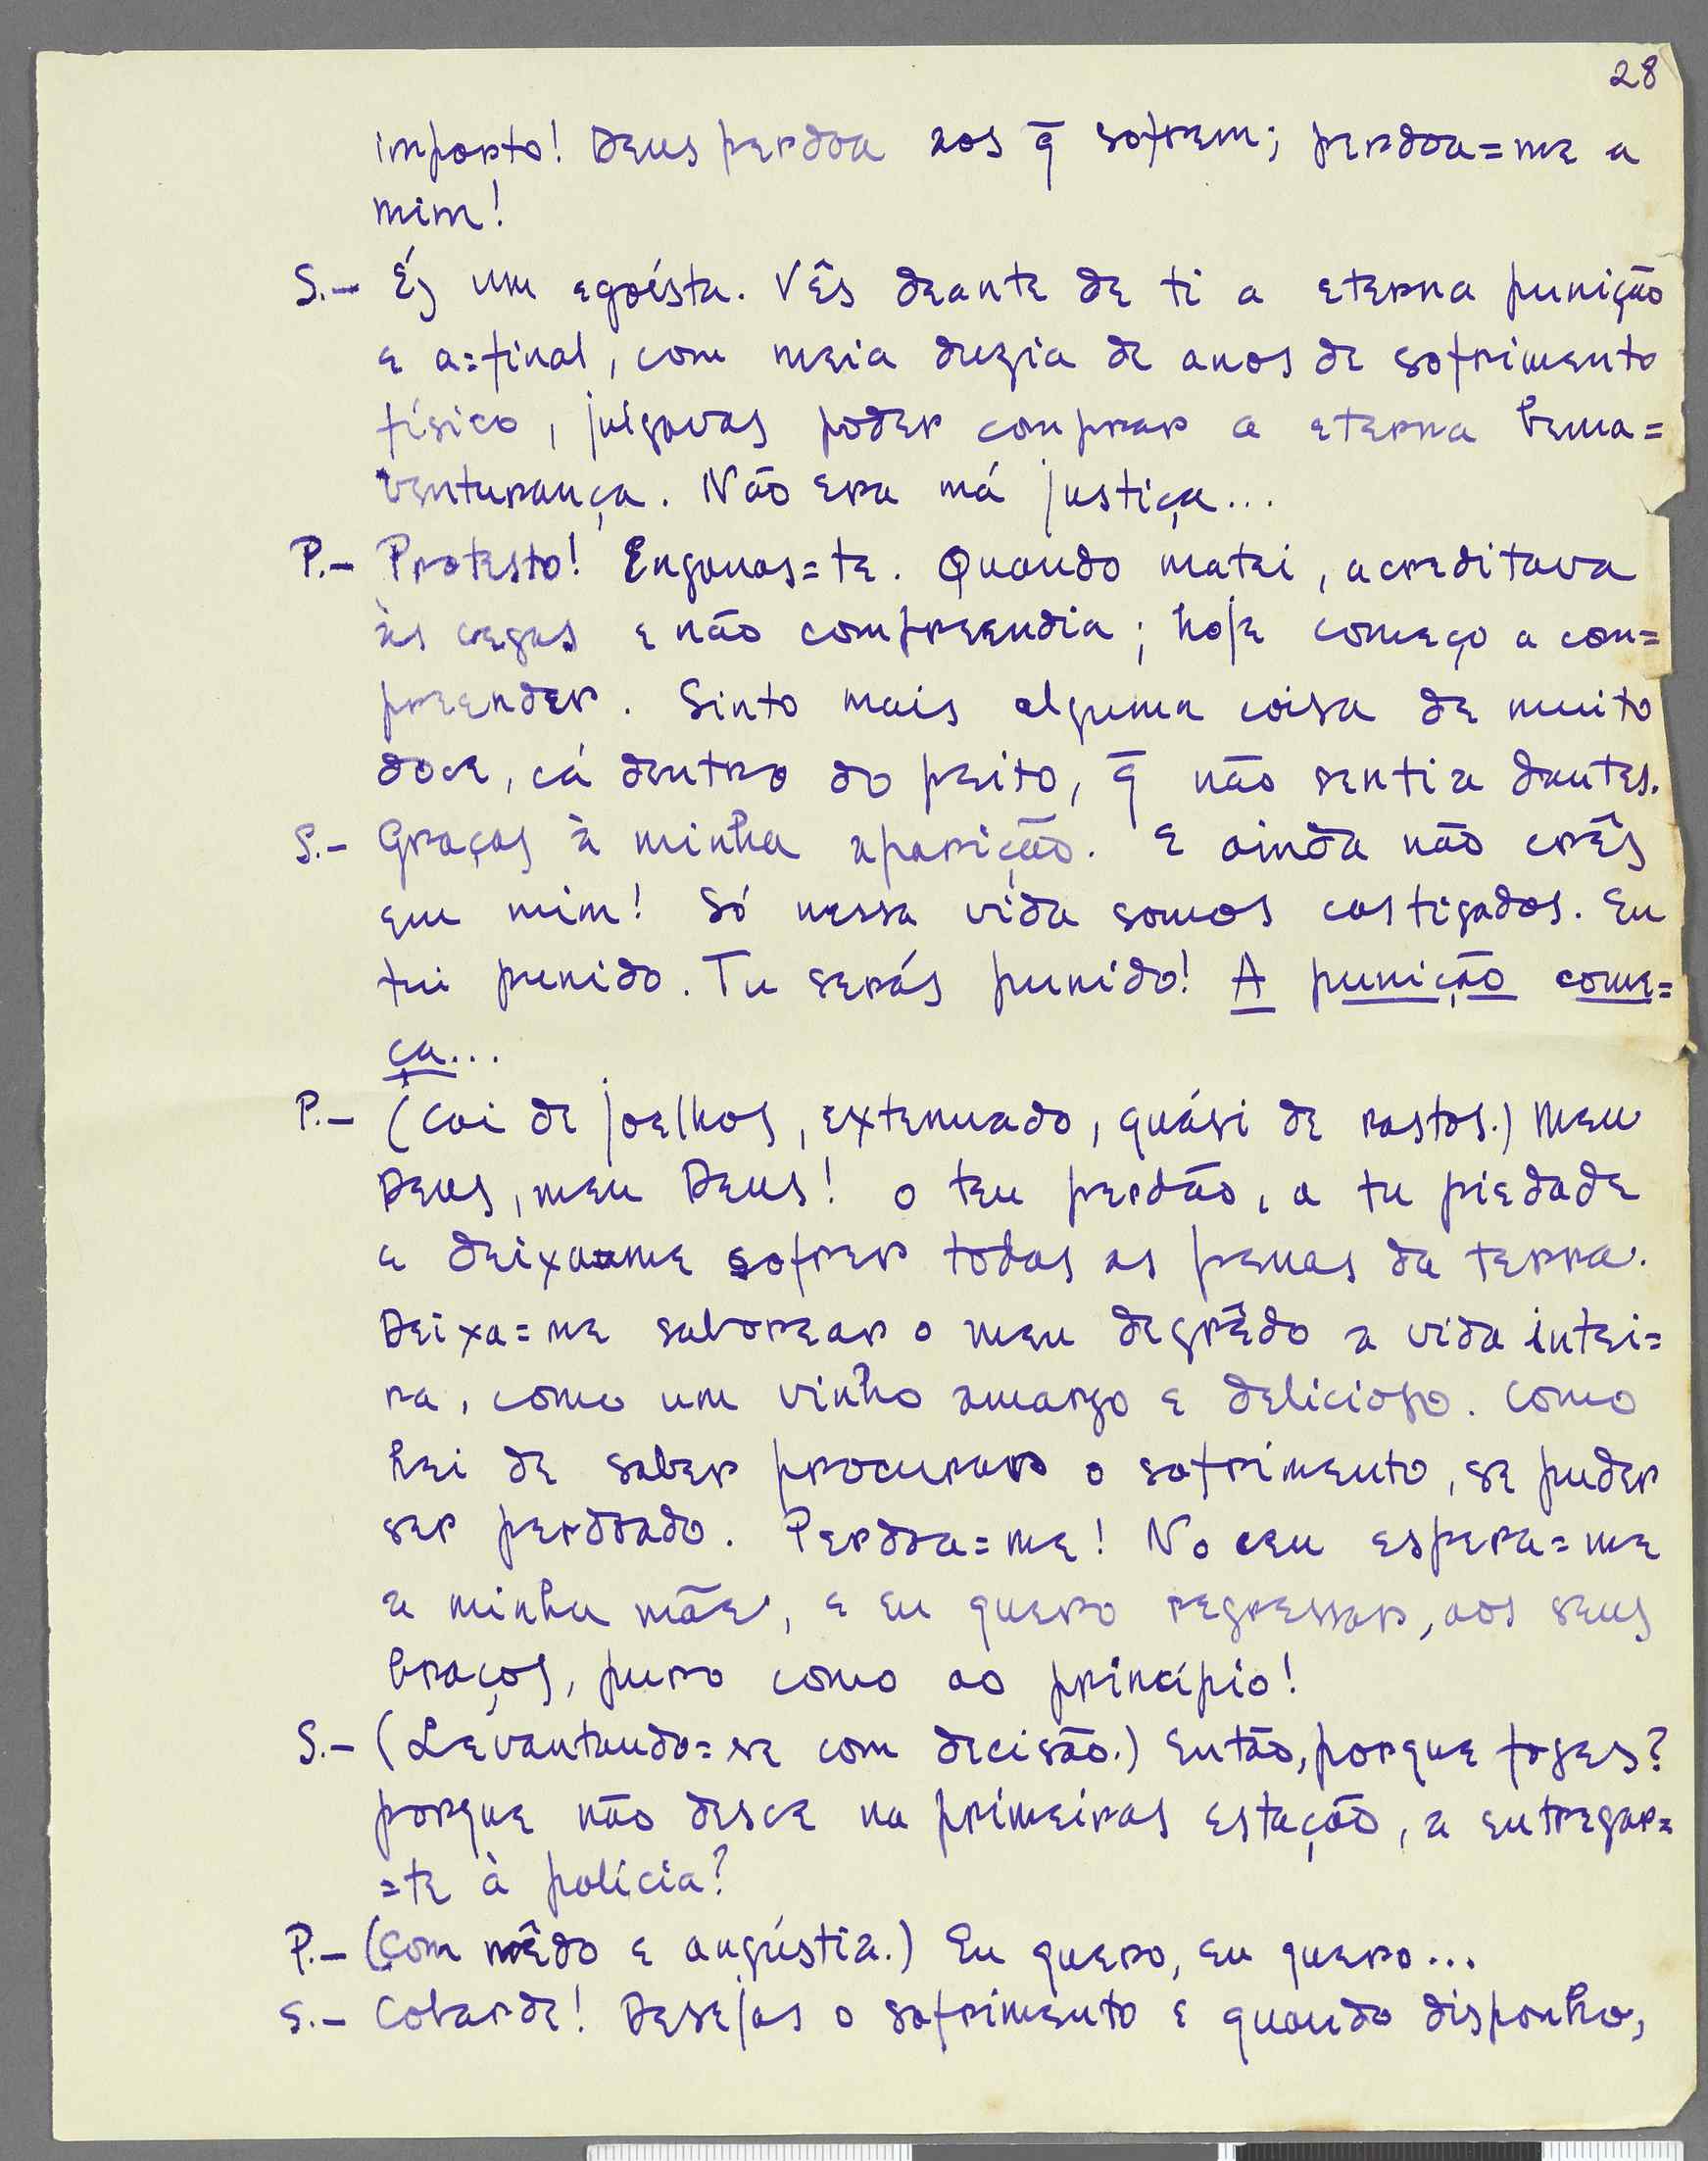 28
importo! Deus perdoa aos q̄ sofrem; perdoa=me a
mim!
S.- És um egoísta. Vês deante de ti a eterna punição
e a=final, com meia duzia de anos de sofrimento
físico, julgavas poder comprar a eterna bema=
venturança. Não era má justiça...
P.- Protesto! Enganas=te. Quando matei, acreditava
às cegas e não compreendia; hoje começo a com=
preender. Sinto mais alguma coisa de muito
doce, cá dentro do peito, q̄ não sentia dantes.
S.- Graças à minha aparição. E ainda não crês
em mim! Só nessa vida somos castigados. Eu
fui punido. Tu serás punido! A punição come=
ça...
P.- (Cai de joelhos, extenuado, quási de rastos.) Meu
Deus, meu Deus! o teu perdão, a tu piedade
e deixa=me sofrer todas as penas da terra.
Deixa=me saborear o meu degrêdo a vida intei=
ra, como um vinho amargo e delicioso. Como
hei de saber procurar o sofrimento, se puder
ser perdoado. Perdoa=me! No ceu espera=me
a minha mãe, e eu quero regressar, aos seus
braços, puro como ao princípio!
S.- (Levantando=se com decisão.) Então, porque foges?
porque não desce na primeiras estação, a entregar=
=te à polícia?
P.- (Com mêdo e angústia.) Eu quero, eu quero...
S.- Cobarde! Desejas o sofrimento e quando disponho,